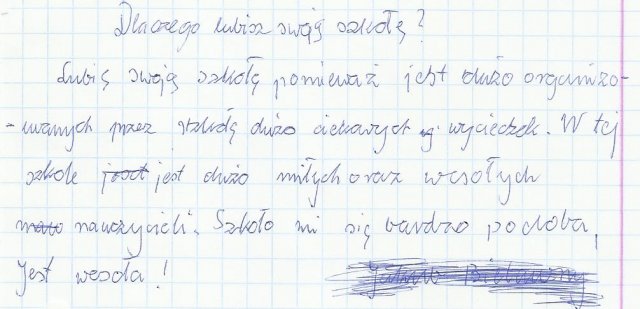 Dlaczego lubisz swoją szkołę?
Lubię swoją szkołę ponieważ jest dużo organizo-
-wanych przez szkołę dużo ciekawych wycieczek. W tej
szkole jest jest dużo miłych oraz wesołych
nauczycieli. Szkoło mi się bardzo podoba,
jest wesoła!